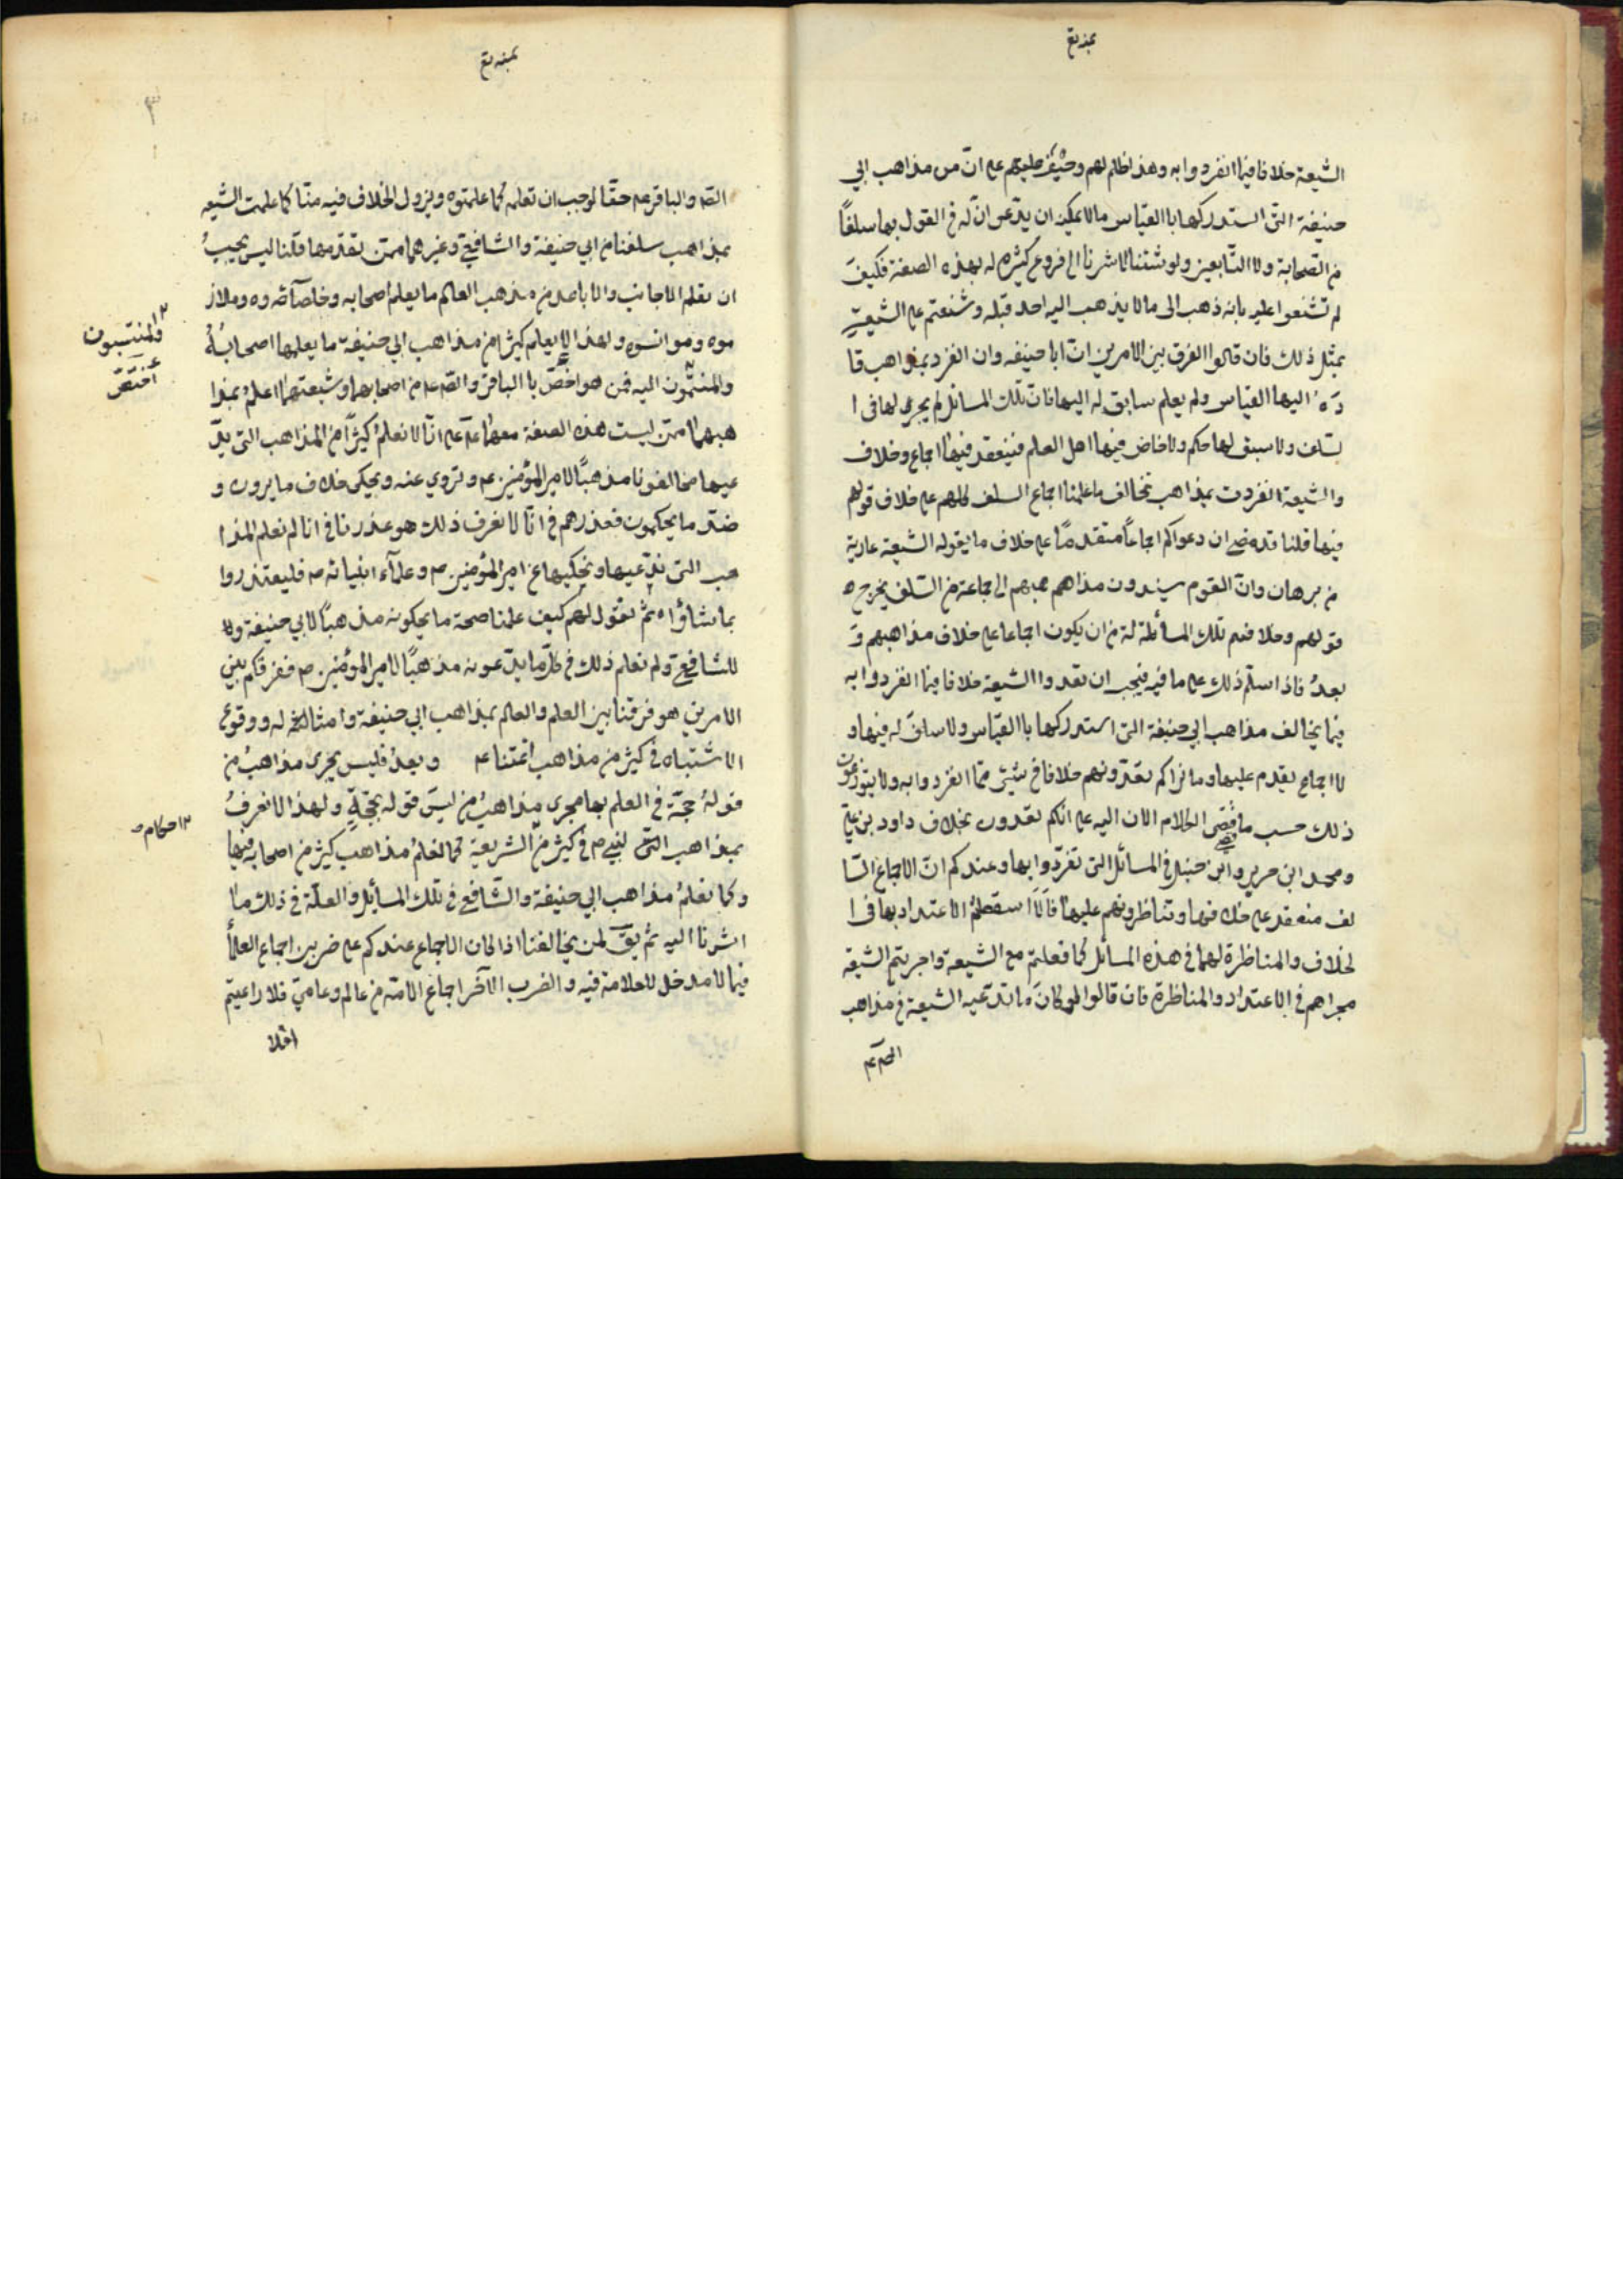 الشيعة خلافا فيما انفردوا به وهذا ظلم لهم وحيف عليهم علي انّ من مذاهب ابي
حنيفة التى استدركها باالقياس مالا يمكن ان يدّعى انّ له في القول بها سلفًا
من الصّحابة ولا التّابعين ولو شئنا لاشرنا الى فروع كثيره له بهذه الصفة فكيفَ
لم تشنعوا عليه بانه ذهب الى مالا يذهب اليه احد قبله وشنعتم علي الشيعة
بمثل ذلك فان قالوا الفرق بين الامرين انّ ابا حنيفه وان انفرد بمذاهب قا
دَه اليها القياس ولم يعلم سابق له اليها فانّ تلك المسائل لم يجرى لها فى ا
لسّلف ولا سبق لها حكم ولا خاض فيها اهل العلم فينعقد فيها اجماع وخلاف
والشيعة انفردت بمذاهب تخالف ما علمنا اجماع السلف كلهم علي خلاف قولهم
فيها قلنا قد مضى ان دعواكم اجماعاً متقدمًا علي خلاف ما يقوله الشيعة عارية
من برهان وانّ القوم يسندون مذاهبهم الى جماعة من السّلف يخرج ه
قولهم وخلافهم تلك المسألة له من ان يكون اجماعا علي خلاف مذاهبهم وَ
بعدُ فاذا سلّم ذلك علي ما فيه فيجب ان تعدوا الشيعة خلافا فيما انفردوا به
فيما يخالف مذاهب ابي حنيفة التى استدركها باالقياس ولا سلفَ له فيها و
لا اجماع يقدم عليها وما نراكم تعدّونهم خلافا في شيئ ممّا انفردوا به ولا
ذلك حسب ما مضى الكلام الان اليه علي انكم تعدون بخلاف داود بن عليّ
ومحمد ابن جرير وابن حنبل في المسائل التى تفرّدوا بها وعندكم انّ الاجماع السّا
لف منعقد علي خلافها وتناظرونهم عليها فالّا اسقطتم الاعتداد بها فى ا
لخلاف والمناظرة لهما في هذه المسائل كما فعلتم مع الشيعة واجريتم الشيعة
مجراهم في الاعتداد والمناظرة فان قالوا لو كانَ ما تدّعيه الشيعة من مذاهب
الصّ والباقر عم حقّا لوجب ان تعلمه كما علمتوه ويزول الخلاف فيه منّا كما علمت الشيعه
بمذاهب سلفنا من ابي حنيفة والشافعيّ وغيرهما ممن تقدّمها قلنا ليس يجبُ
ان يعلم الاجانب والاباعد من مذهب العالم ما يعلم اصحابه وخاصّآئه وملاز
موه وموانسوه ولهذا لا يعلم كثيرًا من مذاهب ابي حنيفة ما يعلمها اصحابُهُ
والمنتمّون اليه فمن هو اخصّ باالباقر والصّ عم من اصحابهما وشيعتهما اعلم بمذا
هبهما ممّن ليست هذه الصفة معهما علي انّا لا نعلمُ كثيرًا من المذاهب التى يدّ
عيها مخالفونا مذهبًا لامير المؤمنين عم وتروي عنه ويحكى خلاف ما يروون و
ضدّ ما يحكمون فعذرهم في انّا لا نعرف ذلك هو عذرنا في انا لم نعلم المذا
هب التى ندّعيها ونحكيها عن امير المؤمنين م وعلمآء ابنيائه م فليعتذروا
بما شاؤا ه ثمّ نقول لهم كيف علمنا صحة ما يحكونه مذهبًا لابي حنيفة ولا
للشافعيّ ولم نعلم ذلك في كلّ ما يدّعونه مذهبًا لامير المؤمنين م ففرقكم بين
الامرين هو فرقنا بين العلم والعالم بمذاهب ابي حنيفة وامثاله ووقوع
الاشتباه في كثير من مذاهب ائمتنا عم وبعدُ فليس يجرى مذاهبُ من
قولهُ حجّة في العلم بها مجرى مذاهبُ من ليسَ قوله بحجّةٍ ولهذا لا نعرفُ
بمذاهب النّبي م في كثير من الشريعة كما نعلمُ مذاهب كثير من اصحابه فيها
وكما نعلمُ مذاهب ابي حنيفة والشّافعي في تلك المسائل والعلّة في ذلك ما
اشرنا اليه ثمّ يقَ لمن يخالفنا اذا كان الاجماع عندكم علي ضربين اجماع العلمآ
فيما لا مدخل للعلامة فيه والضرب الآخر اجماع الامّة من عالم وعاميّ فلا راعيتم
افلا
والمنتسبون
اختصّ
احكام